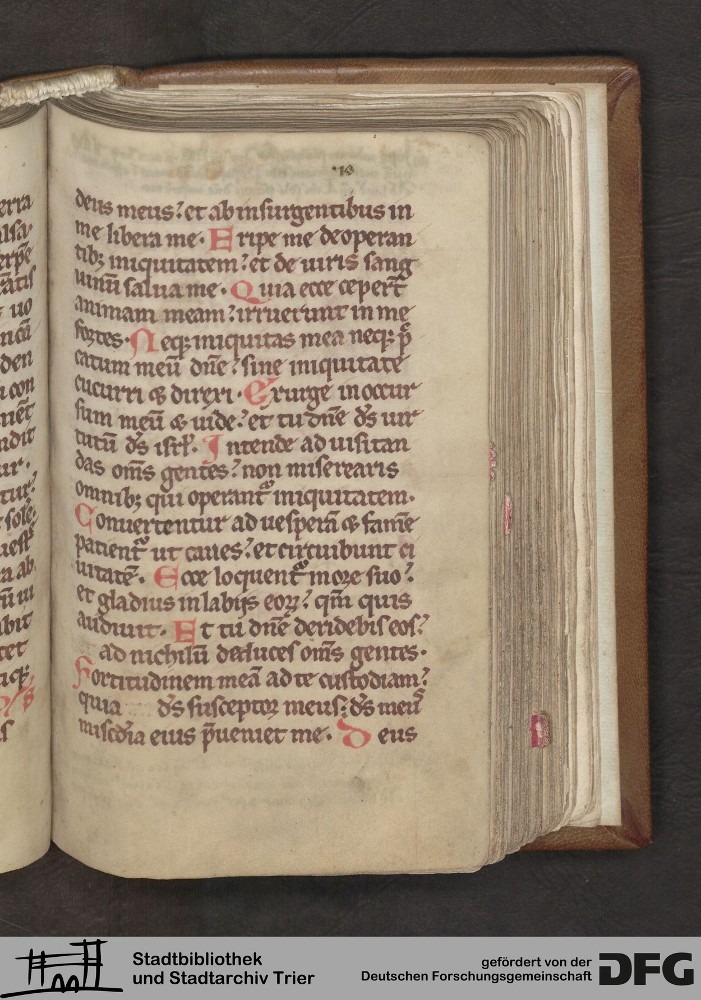 erra
alsa
erpe
ratis
uo
ncu
den
con
uet
ndit
ur.
tur?
sole
uesp
ra ab
uu ui
abit
tet
icq;
10
deus meus? et ab insurgentibus in
me libera me. Eripe me de operan
tib; iniquitatem? et de uiris sang
uinū salua me. Quia ecce ceperūt
animam meam? irruerunt in me
fortes. Neq; iniquitas mea neq; p̄
catum meū dn̄e? sine iniquitate
cucurri & direxi. Exurge in occur
sum meū & uide? et tu dn̄e ds̄ uir
tutū ds̄ isrl̄. Intende ad uisitan
das om̄s gentes? non miserearis
omnib; qui operant᷑ iniquitatem.
Conuertentur ad uesperā & famē
patient᷑ ut canes? et circuibunt ci
uitatē. Ecce loquent᷑ in ore suo?
et gladius in labijs eoꝝ? qm̄ quis
audiuit. Et tu dn̄e deridebis eos?
ad nichilū deduces om̄s gentes.
Fortitudinem meā ad te custodiam?
quia ds̄ susceptor meus? ds̄ meus
misc̄dia eius p̄ueniet me. Deus
Stadtbibliothek
und Stadtarchiv Trier
gefördert von der
Deutschen Forschungsgemeinschaft
DFG